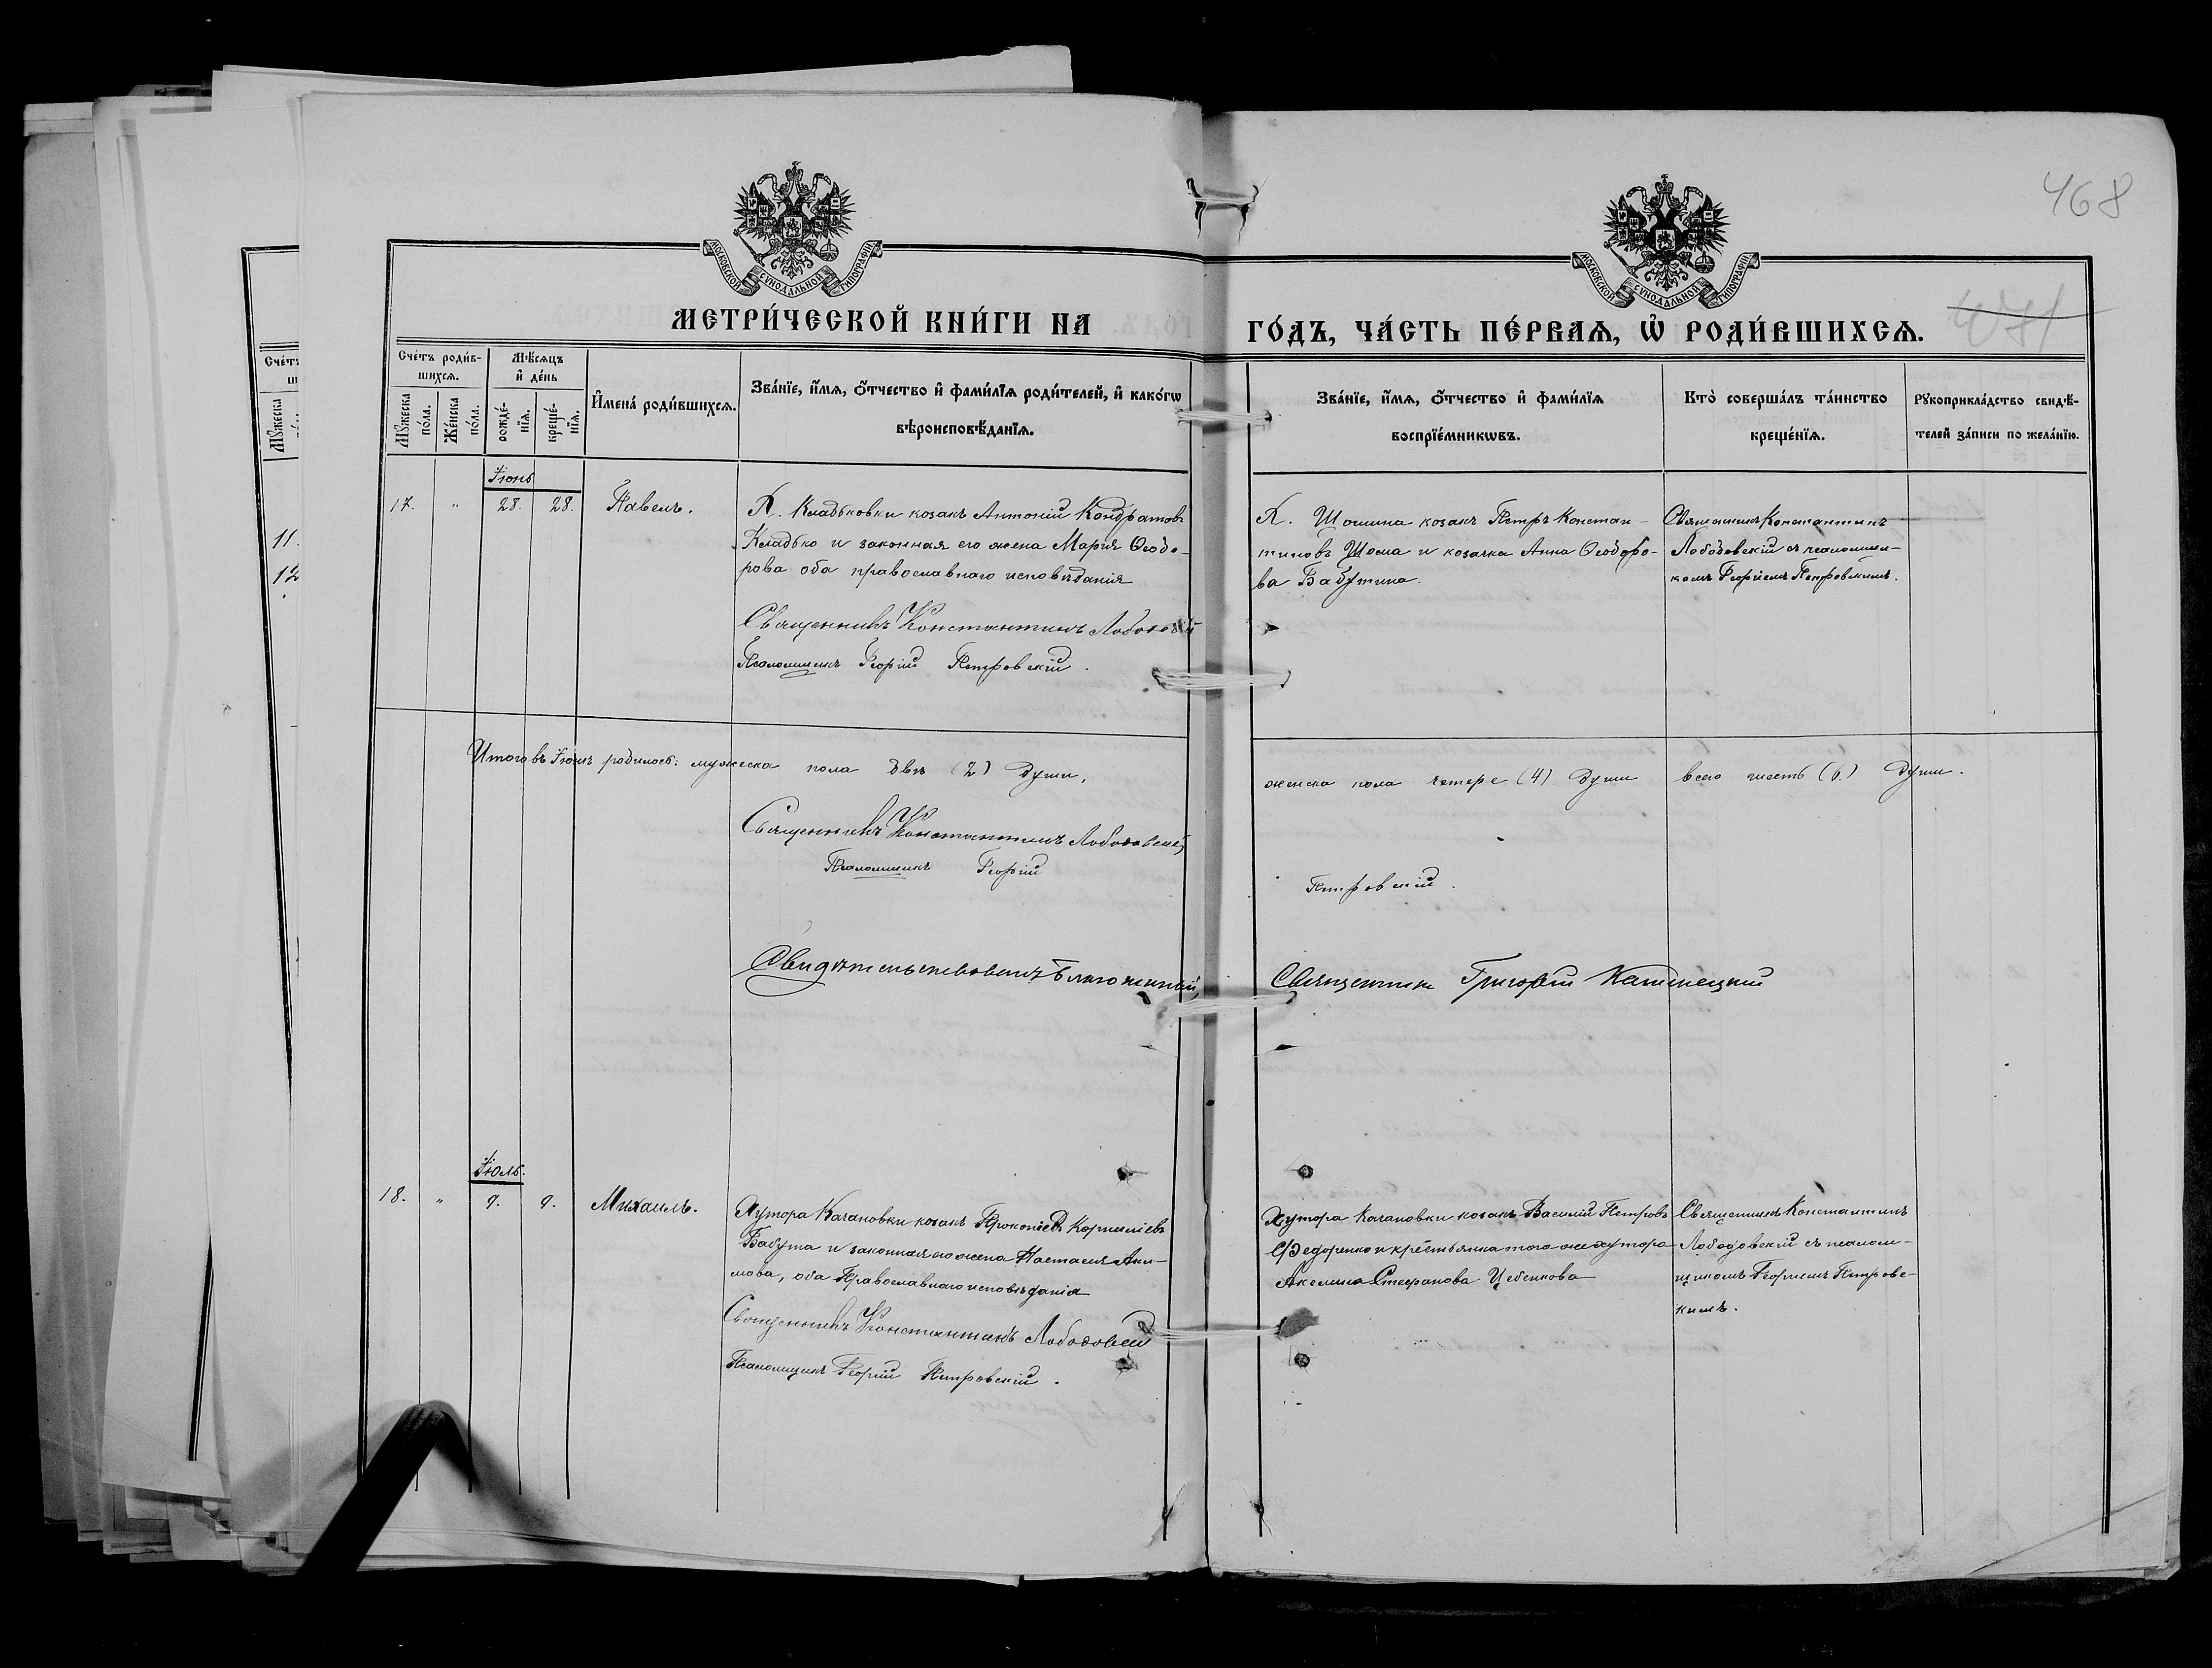 468
МОСКОВСКОЙ СѴНОДАЛЬНОЙ ТИПОГРАФІИ
МОСКОВСКОЙ СѴНОДАЛЬНОЙ ТИПОГРАФІИ
МЕТРИ́ЧЕСКОЙ КНИ́ГИ НА
ГО́ДЪ, ЧА́СТЬ ПЕ́РВАѦ, Ѡ҆ РОДИ́ВШИХСѦ.
Сче́тъ роди́в-
шихсѧ.
Мѣ́сѧцъ
и҆ де́нь
Мꙋ́жеска
по́ла.
Же́нска
по́ла.
рожде́-
нїѧ.
креще́-
нїѧ.
И҆мена̀ роди́вшихсѧ.
Зва́нїе, и҆́мѧ, ѻ҆́тчество и҆ фами́лїѧ роди́телей, и҆ како́гѡ
вѣроисповѣ́данїѧ.
Зва́нїе, и҆́мѧ, ѻ҆́тчество и҆ фами́лїѧ
воспрїе́мникѡвъ.
Кто̀ соверша́лъ та́инство
креще́нїѧ.
Рꙋкоприкла́дство свидѣ́-
телей за́писи по жела́нїю.
Сче́тъ
Мꙋ́жеска
11.
12
Іюнь
17. " 28. 28. Павелъ.
Х. Кладьковки козакъ Антоній Кондратовъ
Кладько и законная его жена Марія Ѳеодо-
рова оба православнаго исповѣданія
Священникъ Константинъ Лободовскій
Псаломщикъ Георгій Петровскій.
Х. Шошина козакъ Петръ Констан-
тиновъ Шома и козачка Анна Ѳеодоро-
ва Бабутина.
Священникъ Константинъ
Лободовскій съ псаломщи-
комъ Георгіемъ Петровскимъ.
Итого въ Іюнѣ родилось: мужеска пола двѣ (2) души, женска пола четыре (4) души всего шесть (6) души.
Священникъ Константинъ Лободовскій
Псаломщикъ Георгій Петровскій.
Свидѣтельствовалъ Благочинный Священникъ Григорій
Іюль.
18. " 9. 9. Михаилъ.
Хутора Качановки козакъ Прокопій Корниліевъ
Бабута и законная его жена Настасія Аки-
мова, оба Православнаго исповѣданія
Священникъ Константинъ Лободовскій
Псаломщикъ Георгій Петровскій.
Хутора Качановки козакъ Василій Петровъ
Федоренко и крестьянка того же хутора
Акелина Стефанова Цебенкова
Священникъ Константинъ
Лободовскій съ псалом-
щикомъ Георгіемъ Петровс-
кимъ.